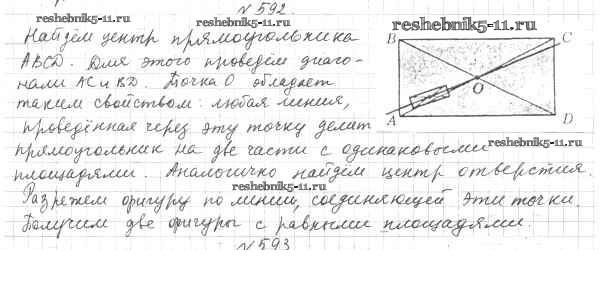 № 592.
reshebnik5-11.ru
reshebnik5-11.ru
reshebnik5-11.ru
Найдём центр прямоугольника
ABCD. Для этого проведём диаго-
нали AC и BD. Точка O обладает
таким свойством: любая линия,
проведённая через эту точку делит
прямоугольник на две части с одинаковыми
площадями. Аналогично найдём центр отверстия.
Разрежем фигуру по линии, соединяющей эти точки.
Получим две фигуры с равными площадями.
B
C
O
A
D
reshebnik5-11.ru
reshebnik5-11.ru
№ 593